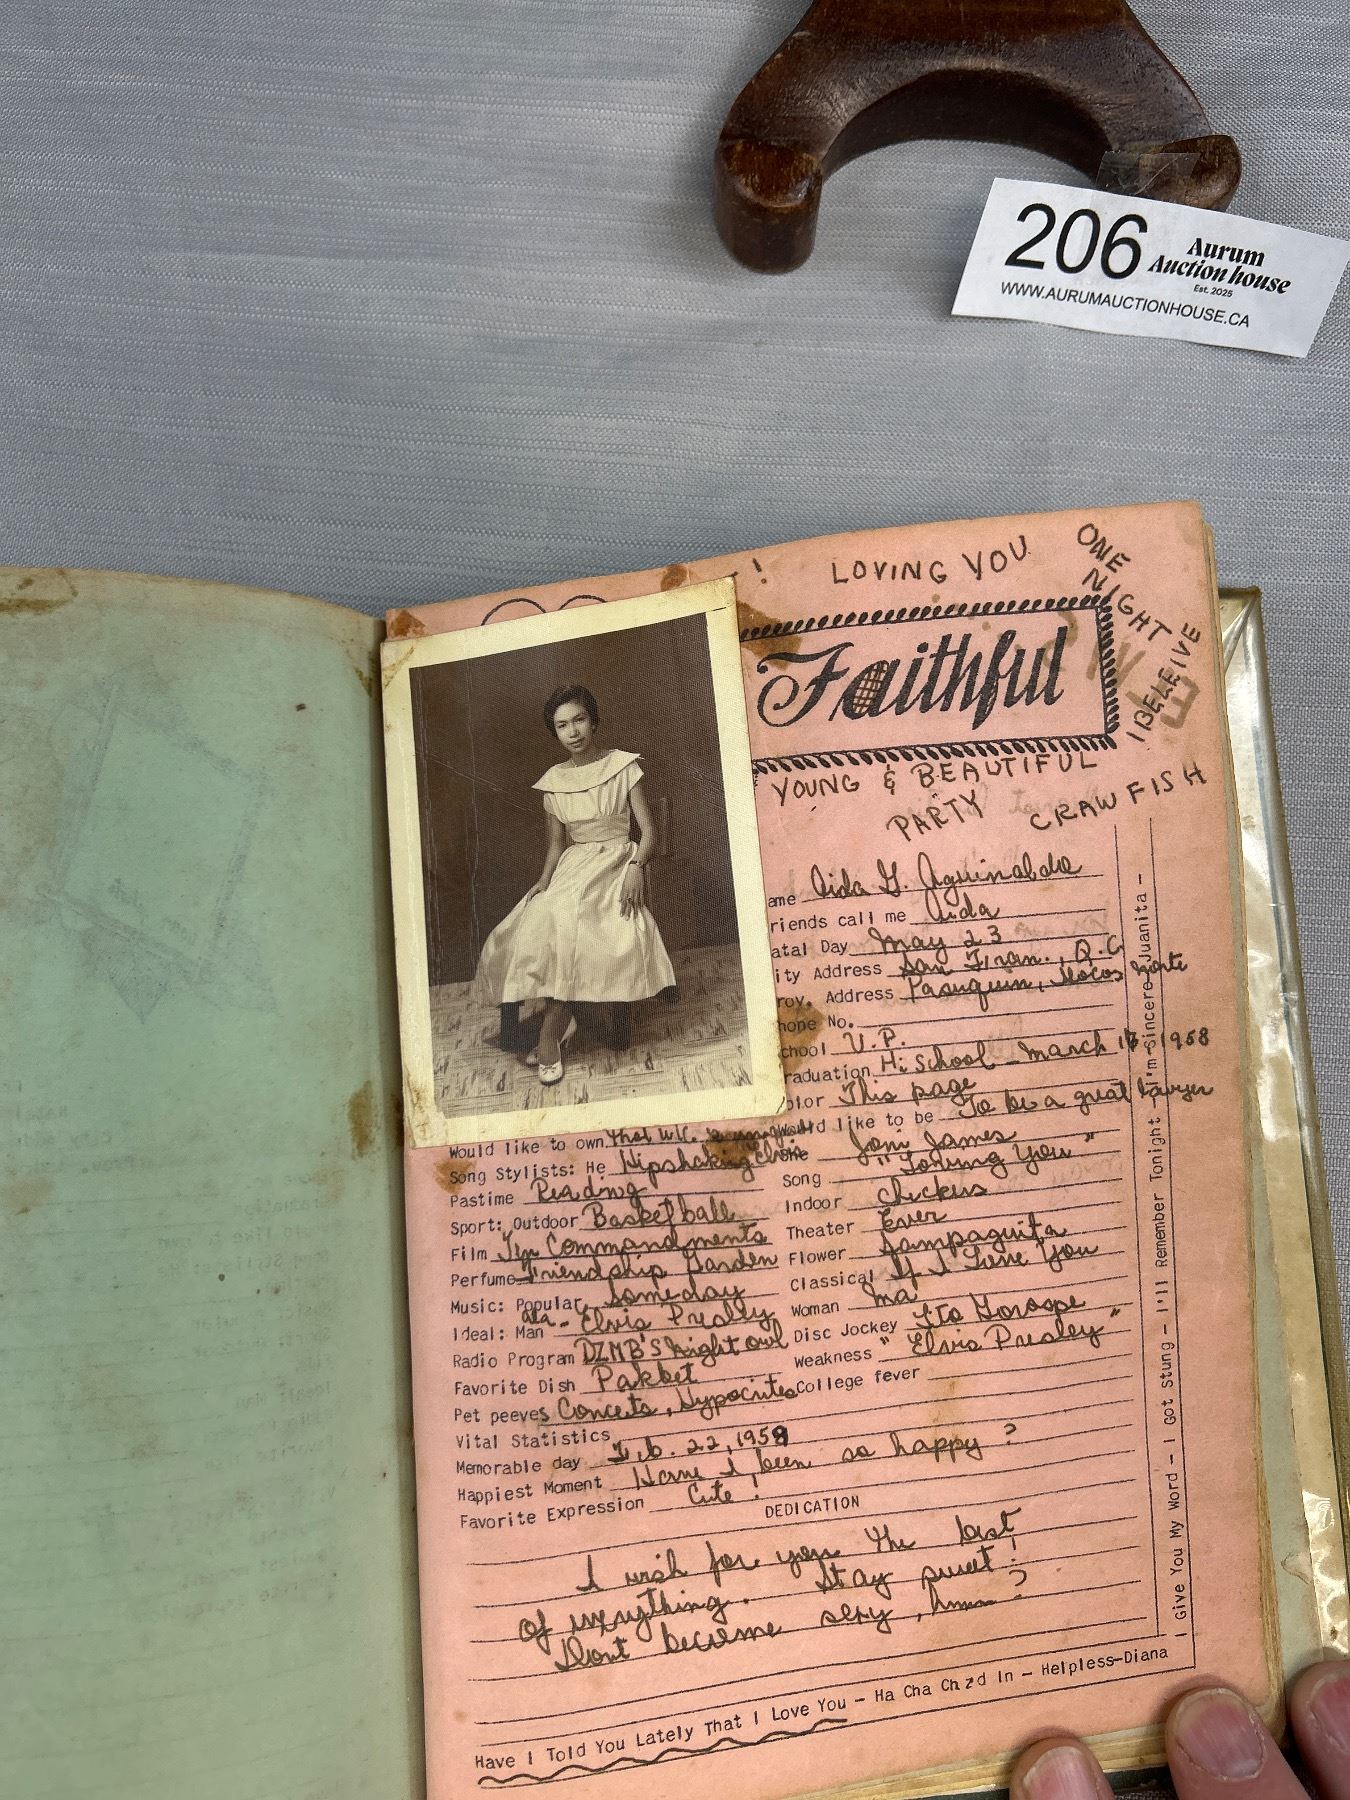 206
Aurum
Auction house
Est. 2025
WWW.AURUMAUCTIONHOUSE.CA
! LOVING YOU
ONE
NIGHT
I BELEIVE
Faithful
YOUNG & BEAUTIFUL
PARTY
CRAWFISH
ame Aida G. Aguinaldo
riends call me Aida
atal Day May 23
ity Address San Fran., Q.C.
rov. Address Pasuquin, Ilocos Norte
hone No.
chool U.P.
raduation Hi School - March 1958
olor This page
ld like to be To be a great lawyer
Would like to own that
Song Stylists: He Hipshaking Elvis
Joni James
Pastime Reading
Song "Loving You"
Sport: Outdoor Basketball
Indoor checkers
Film Ten Commandments
Theater Ever
Perfume Friendship Garden
Flower Sampaguita
Music: Popular Someday
Classical If I Love You
Ideal: Man ala - Elvis Presley
Woman Ma
Radio Program DZMB'S Night owl
Disc Jockey Ito Gorospe
Favorite Dish Pakbet
Weakness "Elvis Presley"
Pet peeves Conceits, Hypocrites
College fever
Vital Statistics
Memorable day Feb. 22, 1959
Happiest Moment Have I been so happy?
Favorite Expression Cute!
DEDICATION
I wish for you the best
of everything. Stay sweet!
Dont become sexy, hmm?
Have I Told You Lately That I Love You - Ha Cha Chad In - Helpless-Diana
I Give You My Word - I Got Stung - I'll Remember Tonight - I'm Sincere-Juanita -